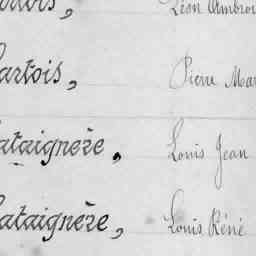 Léon Ambroi
artois, Pierre Mar
ataignère, Louis Jean
ataignère, Louis Réné